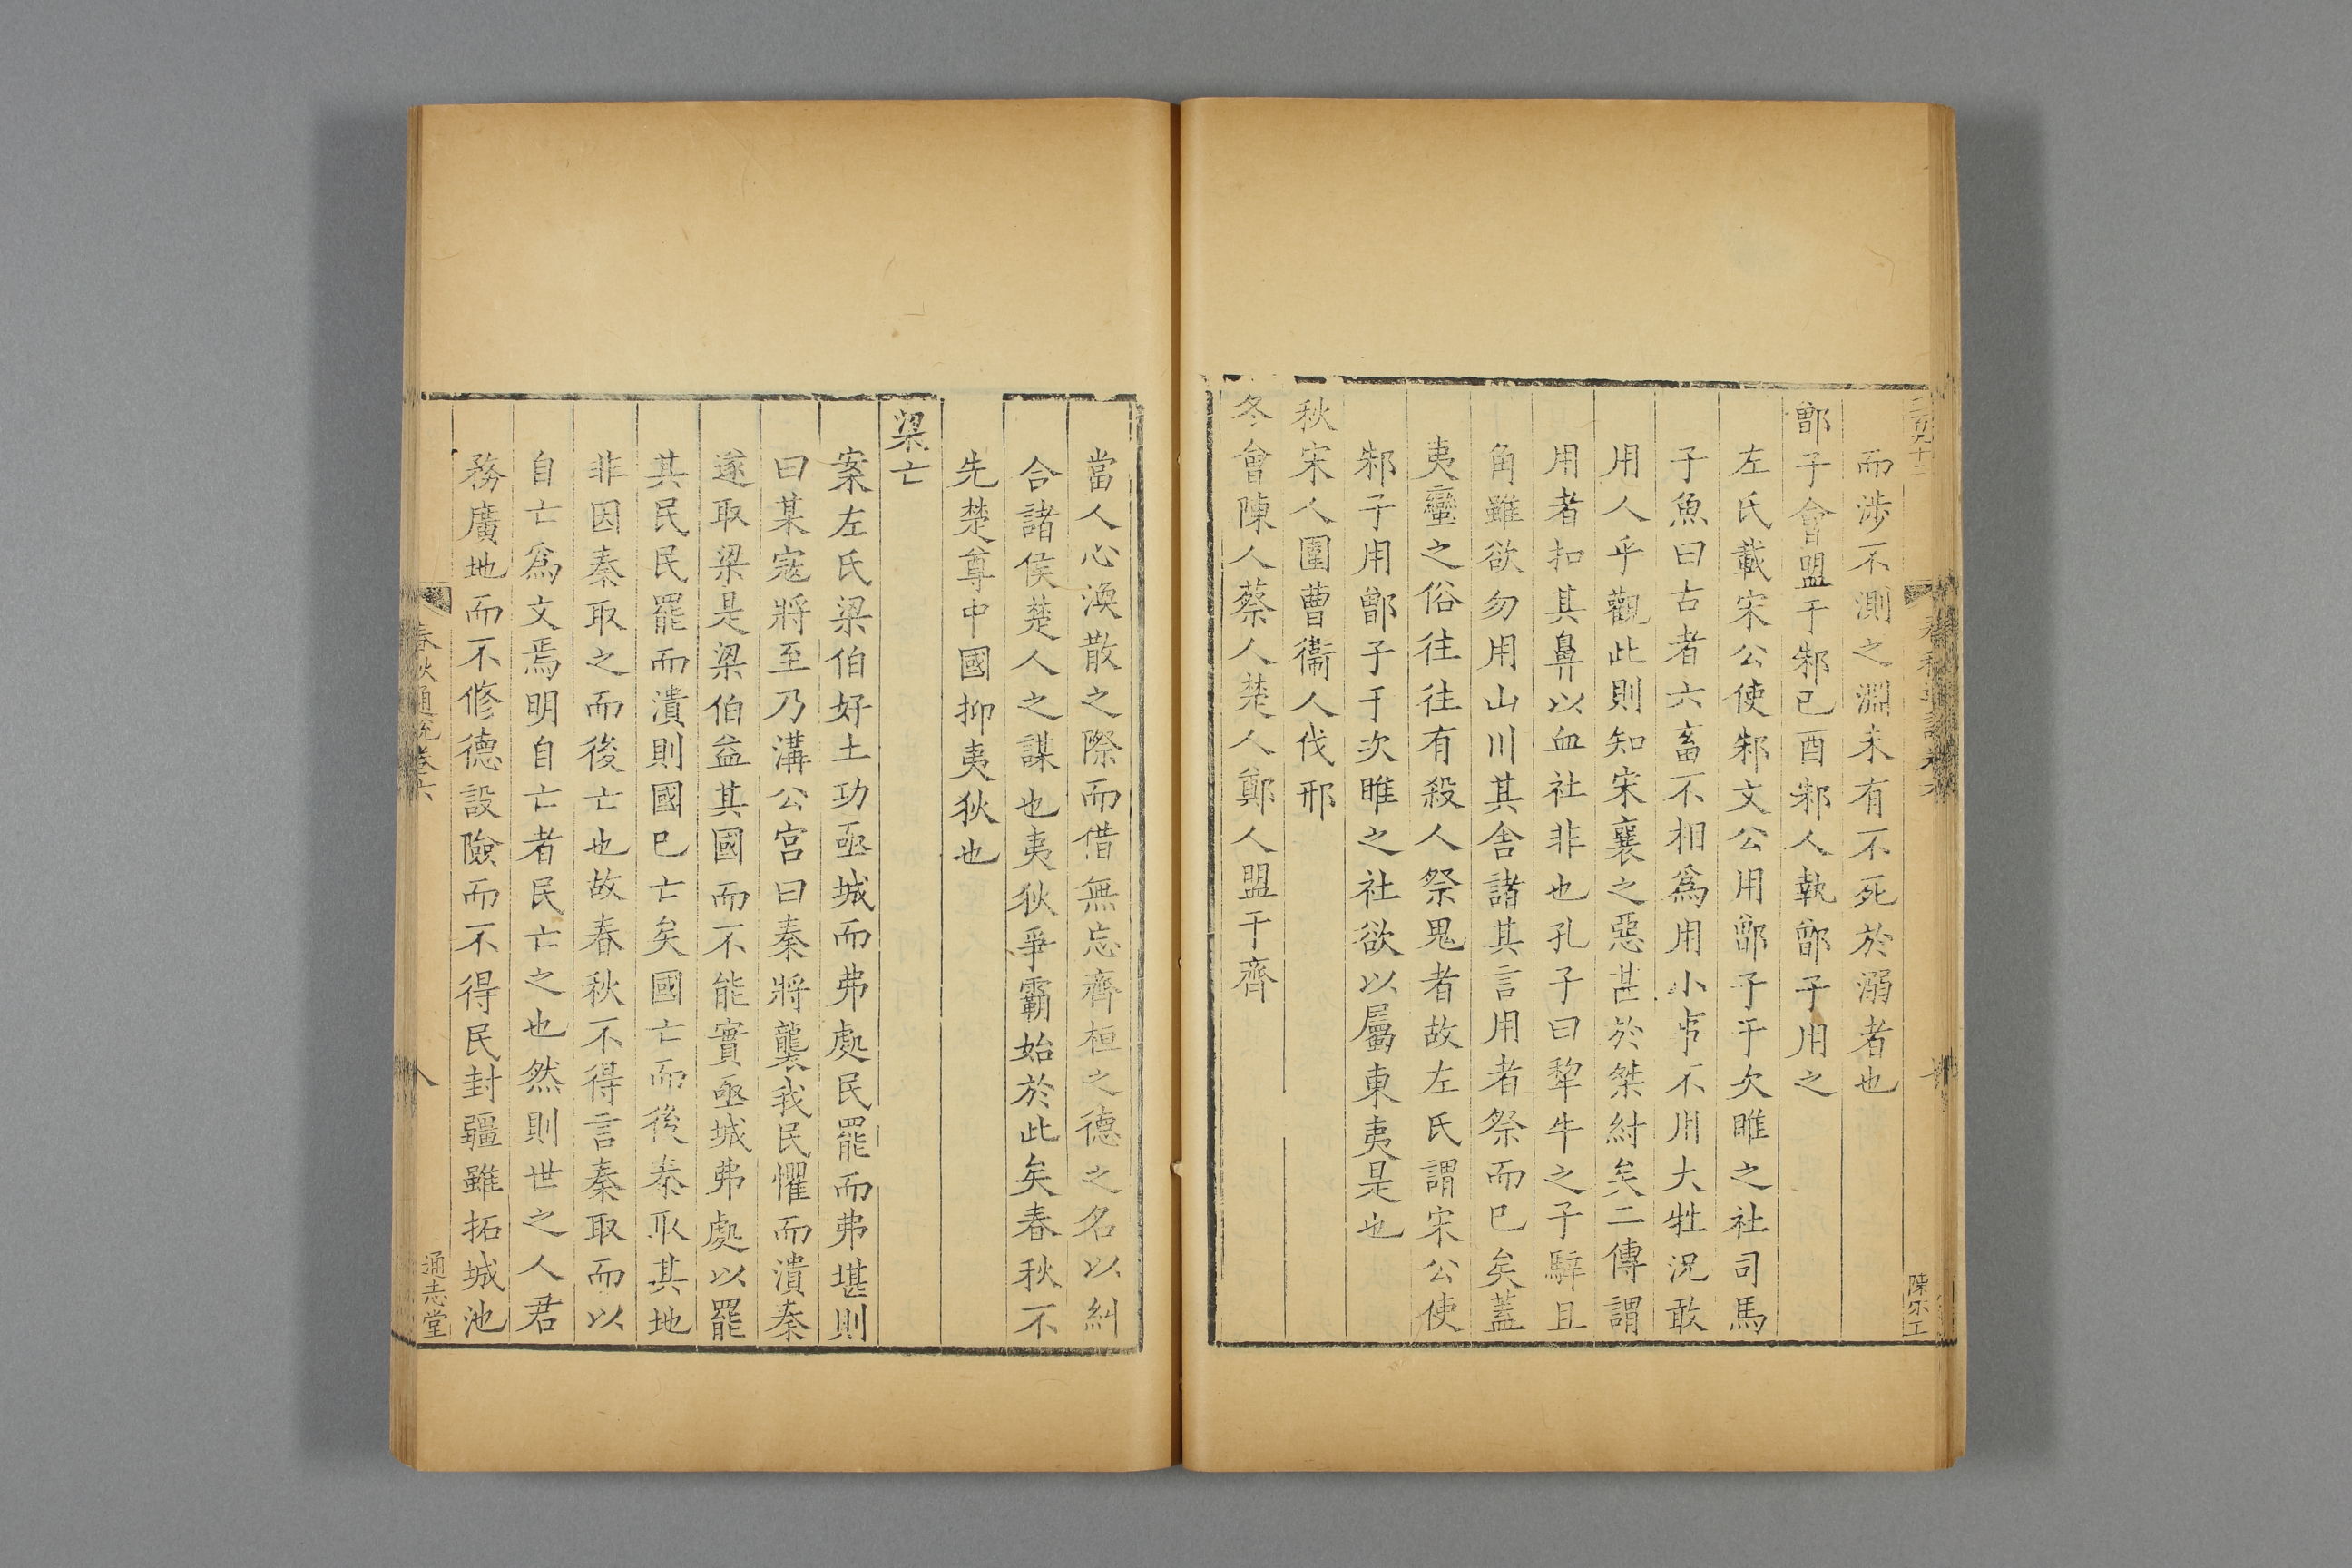 而涉不測之淵未有不死於溺者也
鄫子會盟于邾己酉邾人執鄫子用之
左氏載宋公使邾文公用鄫子于次睢之社司馬
子魚曰古者六畜不相爲用小事不用大牲況敢
用人乎觀此則知宋襄之惡甚於桀紂矣二傳謂
用者扣其鼻以血社非也孔子曰犂牛之子騂且
角雖欲勿用山川其舍諸其言用者祭而已矣蓋
夷蠻之俗往往有殺人祭鬼者故左氏謂宋公使
邾子用鄫子于次睢之社欲以屬東夷是也
秋宋人圍曹衞人伐邢
冬會陳人蔡人楚人鄭人盟于齊
陳
當人心渙散之際而借無忘齊桓之德之名以糾
合諸侯楚人之謀也夷狄爭霸始於此矣春秋不
先楚尊中國抑夷狄也
梁亡
案左氏梁伯好土功亟城而弗處民罷而弗堪則
曰某寇將至乃溝公宮曰秦將襲我民懼而潰秦
遂取梁是梁伯益其國而不能實亟城弗處以罷
其民民罷而潰則國已亡矣國亡而後秦取其地
非因秦取之而後亡也故春秋不得言秦取而以
自亡爲文焉明自亡者民亡之也然則世之人君
務廣地而不修德設險而不得民封疆雖拓城池
春秋通說卷六
八
通志堂